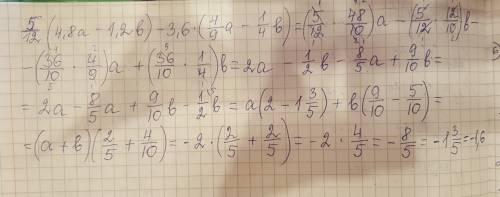 5/12 (4,8a − 1,2b) − 3,6 · (4/9 a − 1/4 b) = (5/12 · 48/10) a − (5/12 · 12/10) b −
− (36/10 · 4/9) a + (36/10 · 1/4) b = 2a − 1/2 b − 8/5 a + 9/10 b =
= 2a − 8/5 a + 9/10 b − 1/2 b = a (2 − 1 3/5) + b (9/10 − 5/10) =
= (a + b) (2/5 + 4/10) = −2 · (2/5 + 2/5) = −2 · 4/5 = − 8/5 = −1 3/5 = −1,6